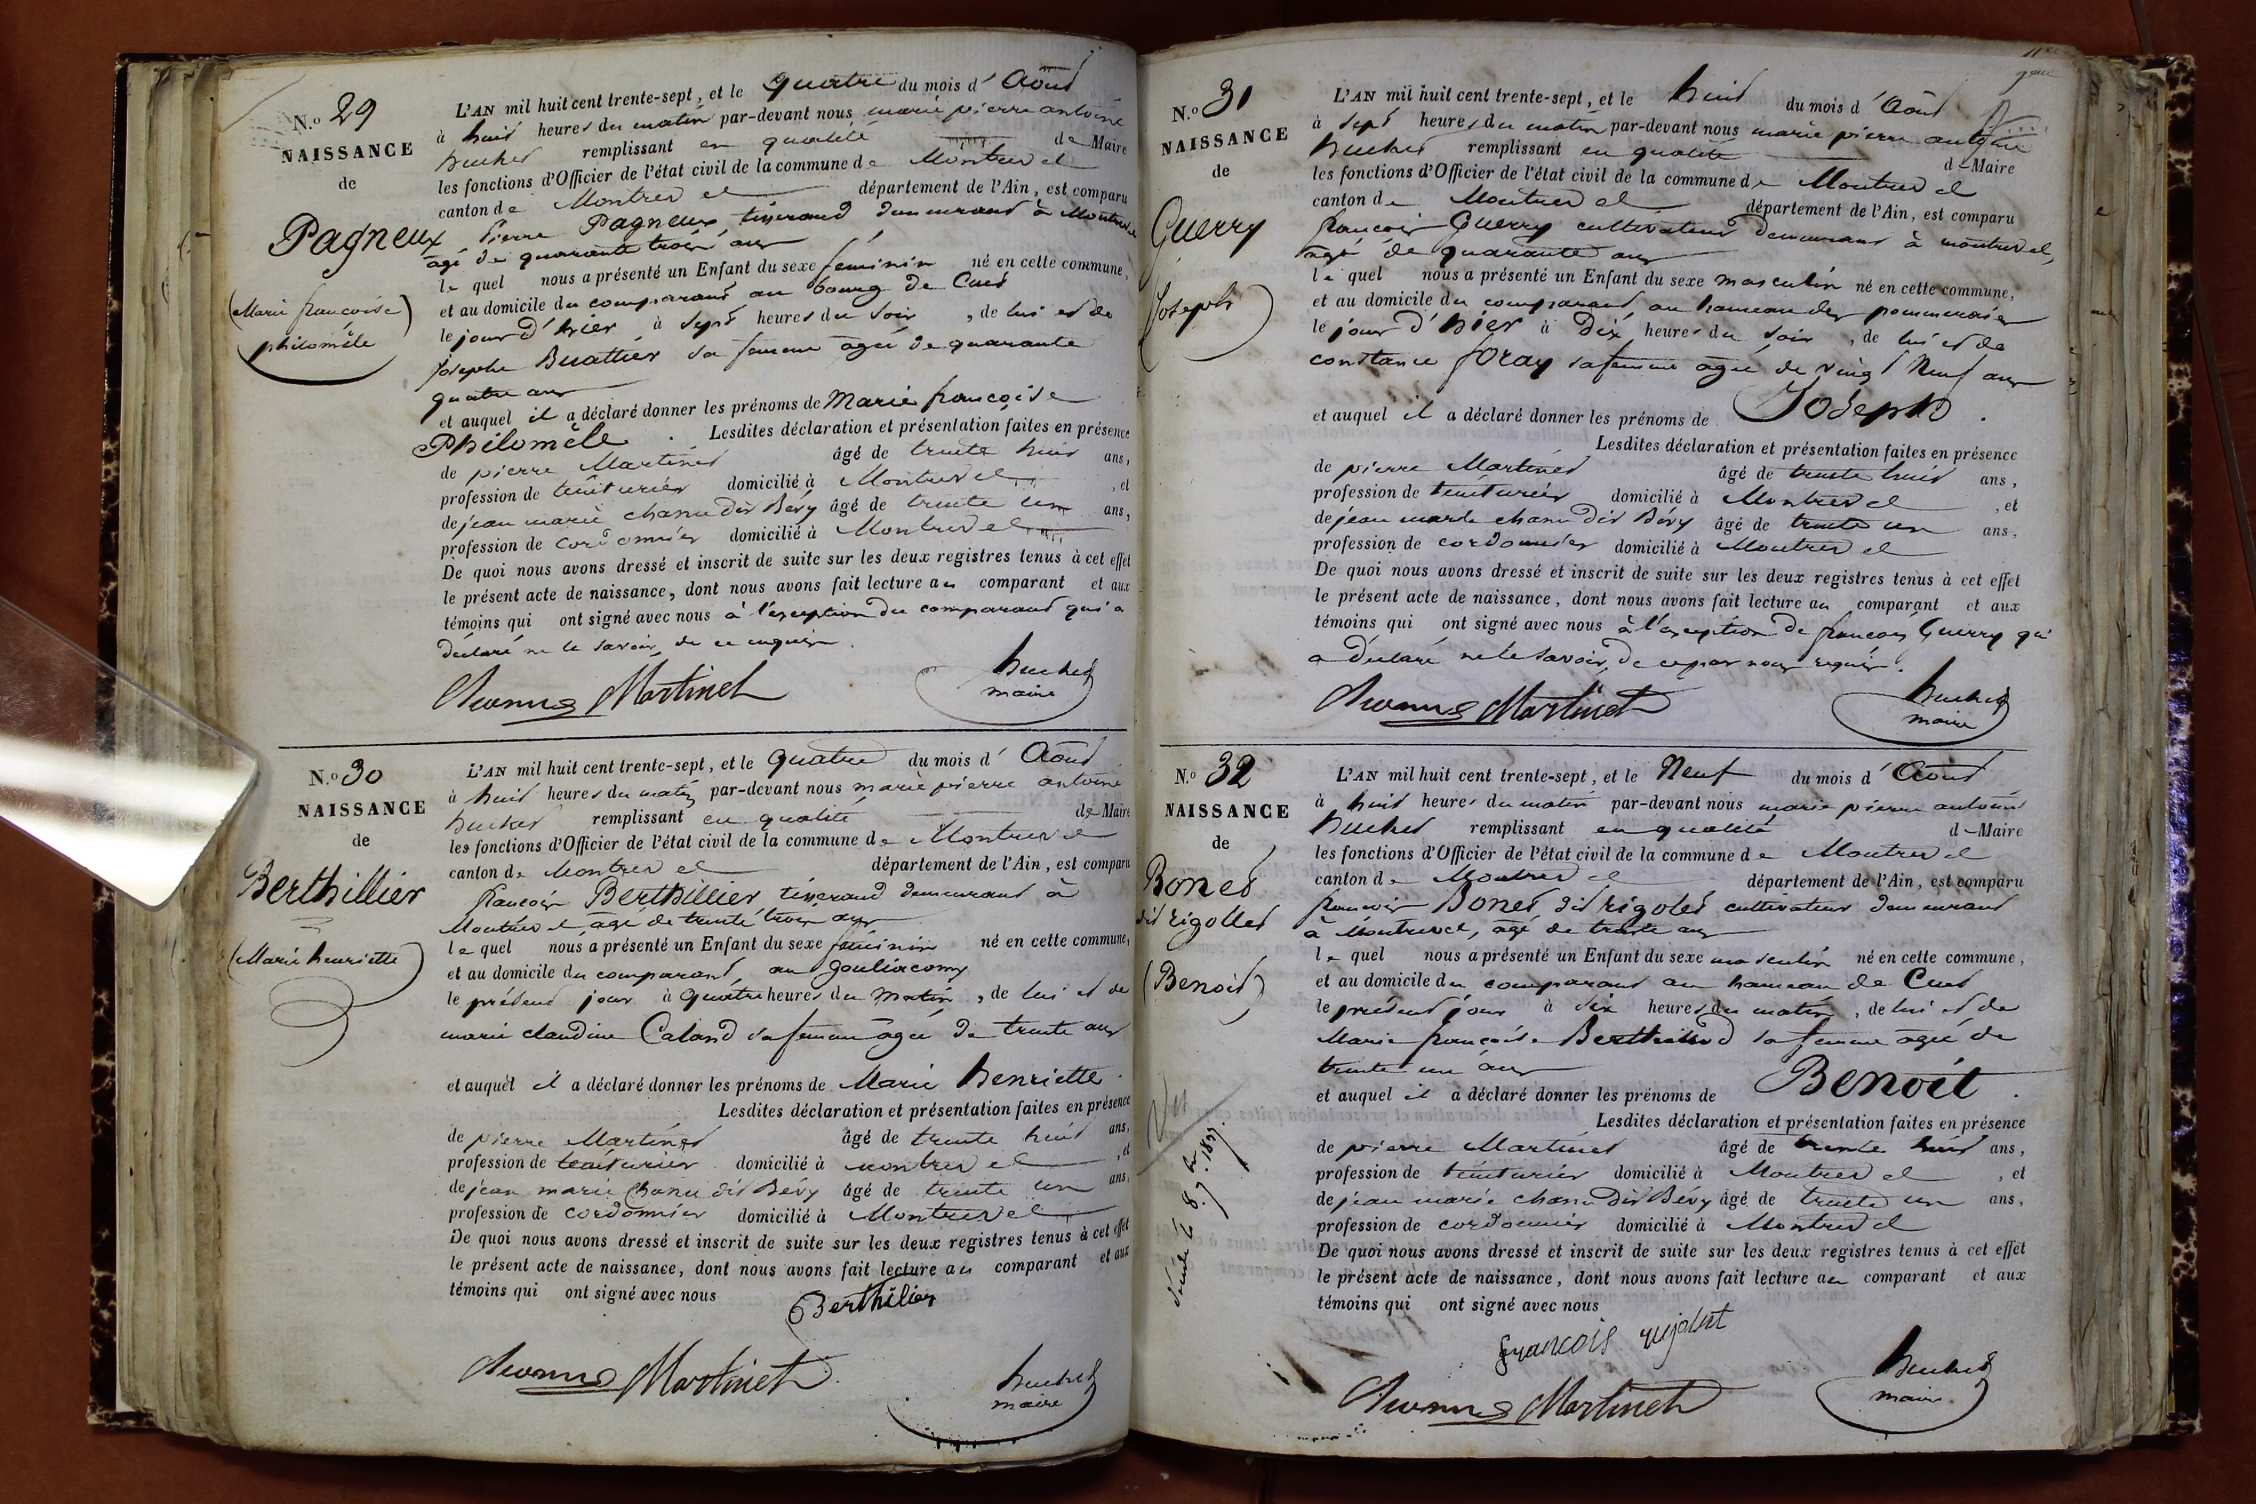 N.º 29
NAISSANCE
de
Pagneux
(Marie françoise
philomèle)
L'AN mil huit cent trente-sept, et le quatre du mois d'Août
à huit heures du matin par-devant nous marie pierre antoine
huchet remplissant en qualité de Maire
les fonctions d'Officier de l'état civil de la commune de Montrevel
canton de Montrevel département de l'Ain, est comparu
Pierre Pagneux tisserand demeurant à Montrevel
agé de quarante trois ans
le quel nous a présenté un Enfant du sexe féminin né en cette commune,
et au domicile du comparant au bourg de Cuet
le jour d'hier à sept heures du soir, de lui et de
Josephe Buattier sa femme agée de quarante
quatre ans
et auquel il a déclaré donner les prénoms de Marie françoise
Philomèle. Lesdites déclaration et présentation faites en présence
de pierre Martinet âgé de trente huit ans,
profession de teinturier domicilié à Montrevel, et
de jean marie chanu dit Bévy âgé de trente un ans,
profession de cordonnier domicilié à Montrevel
De quoi nous avons dressé et inscrit de suite sur les deux registres tenus à cet effet
le présent acte de naissance, dont nous avons fait lecture au comparant et aux
témoins qui ont signé avec nous à l'exception du comparant qui a
déclaré ne le savoir, de ce enquis.
Martinet
huchet
maire
N.º 30
NAISSANCE
de
Berthillier
(Marie henriette)
L'AN mil huit cent trente-sept, et le quatre du mois d'Août
à huit heures du matin par-devant nous marie pierre antoine
huchet remplissant en qualité de Maire
les fonctions d'Officier de l'état civil de la commune de Montrevel
canton de Montrevel département de l'Ain, est comparu
françois Berthillier tisserand demeurant à
Montrevel agé de trente trois ans
le quel nous a présenté un Enfant du sexe féminin né en cette commune,
et au domicile du comparant, au
le présent jour à quatre heures du matin, de lui et de
marie claudine Caland sa femme agée de trente ans
et auquel il a déclaré donner les prénoms de Marie henriette.
Lesdites déclaration et présentation faites en présence
de pierre Martinet âgé de trente huit ans,
profession de teinturier domicilié à montrevel, et
de jean marie Chanu dit Bévy âgé de trente un ans,
profession de cordonnier domicilié à Montrevel
De quoi nous avons dressé et inscrit de suite sur les deux registres tenus à cet effet
le présent acte de naissance, dont nous avons fait lecture au comparant et aux
témoins qui ont signé avec nous
Berthilier
Martinet
huchet
maire
N.º 31
NAISSANCE
de
Guerry
Joseph
L'AN mil huit cent trente-sept, et le huit du mois d'Août
à sept heures du matin par-devant nous marie pierre antoine
huchet remplissant en qualité de Maire
les fonctions d'Officier de l'état civil de la commune de Montrevel
canton de Montrevel département de l'Ain, est comparu
françois Guerry cultivateur demeurant à montrevel,
agé de quarante ans
le quel nous a présenté un Enfant du sexe masculin né en cette commune,
et au domicile du comparant, au hameau des pommeraies
le jour d'hier à dix heures du soir, de lui et de
constance foray sa femme agée de vingt Neuf ans
et auquel il a déclaré donner les prénoms de Joseph.
Lesdites déclaration et présentation faites en présence
de pierre Martinet âgé de trente huit ans,
profession de teinturier domicilié à Montrevel, et
de jean marie chanu dit Bévy âgé de trente un ans,
profession de cordonnier domicilié à Montrevel
De quoi nous avons dressé et inscrit de suite sur les deux registres tenus à cet effet
le présent acte de naissance, dont nous avons fait lecture au comparant et aux
témoins qui ont signé avec nous à l'exception de françois Guerry qui
a déclaré ne le savoir, de ce par nous requis.
Martinet
huchet
maire
N.º 32
NAISSANCE
de
Bonet
dit Rigollet
(Benoit)
L'AN mil huit cent trente-sept, et le Neuf du mois d'Août
à huit heures du matin par-devant nous marie pierre antoine
huchet remplissant en qualité de Maire
les fonctions d'Officier de l'état civil de la commune de Montrevel
canton de Montrevel département de l'Ain, est comparu
françois Bonet dit rigolet cultivateur demeurant
à Montrevel, agé de trente ans
le quel nous a présenté un Enfant du sexe masculin né en cette commune,
et au domicile du comparant au hameau de Cuet
le présent jour à six heures du matin, de lui et de
Marie françoise Berthilliod sa femme agée de
trente un ans
et auquel il a déclaré donner les prénoms de Benoit.
Lesdites déclaration et présentation faites en présence
de pierre Martinet âgé de trente huit ans,
profession de teinturier domicilié à Montrevel, et
de jean marie chanu dit Bévy âgé de trente un ans,
profession de cordonnier domicilié à Montrevel
De quoi nous avons dressé et inscrit de suite sur les deux registres tenus à cet effet
le présent acte de naissance, dont nous avons fait lecture au comparant et aux
témoins qui ont signé avec nous
françois
Martinet
huchet
maire